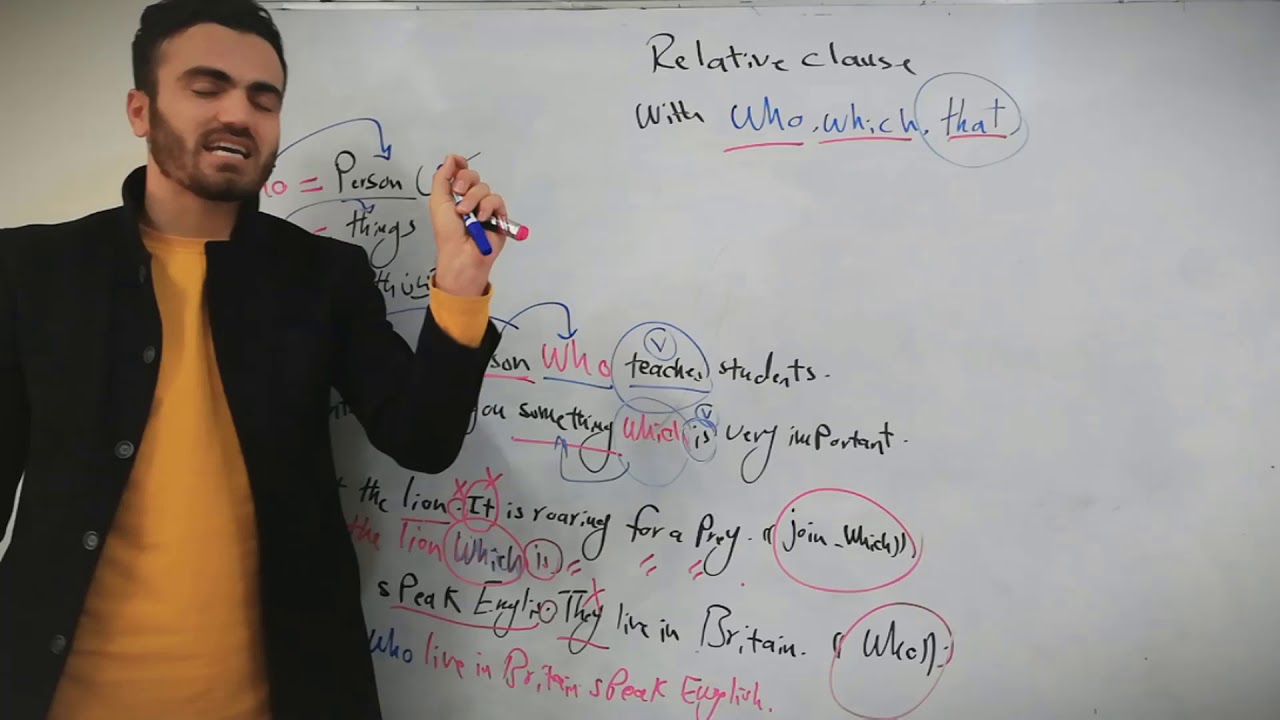 Relative clause
With who, which, that
= Person (
things
who teaches students.
something which is very important.
the lion. It is roaring for a Prey. ((join - which))
the lion which is = = =
speak English. They live in Britain. ((who)).
who live in Britain speak English.